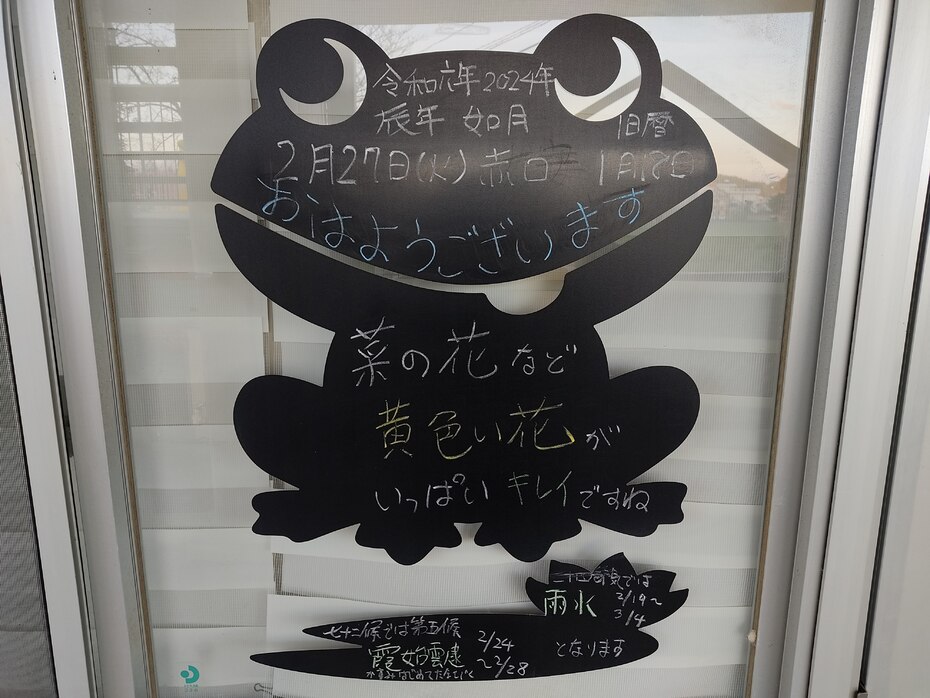 令和六年 2024年
辰年 如月 旧暦
2月27日(火) 赤口 1月18日
おはようございます
菜の花など
黄色い花が
いっぱいキレイですね
二十四節気では
雨水 2/19～3/4
七十二候では第五候 2/24～2/28
霞始靆
かすみはじめてたなびく
となります